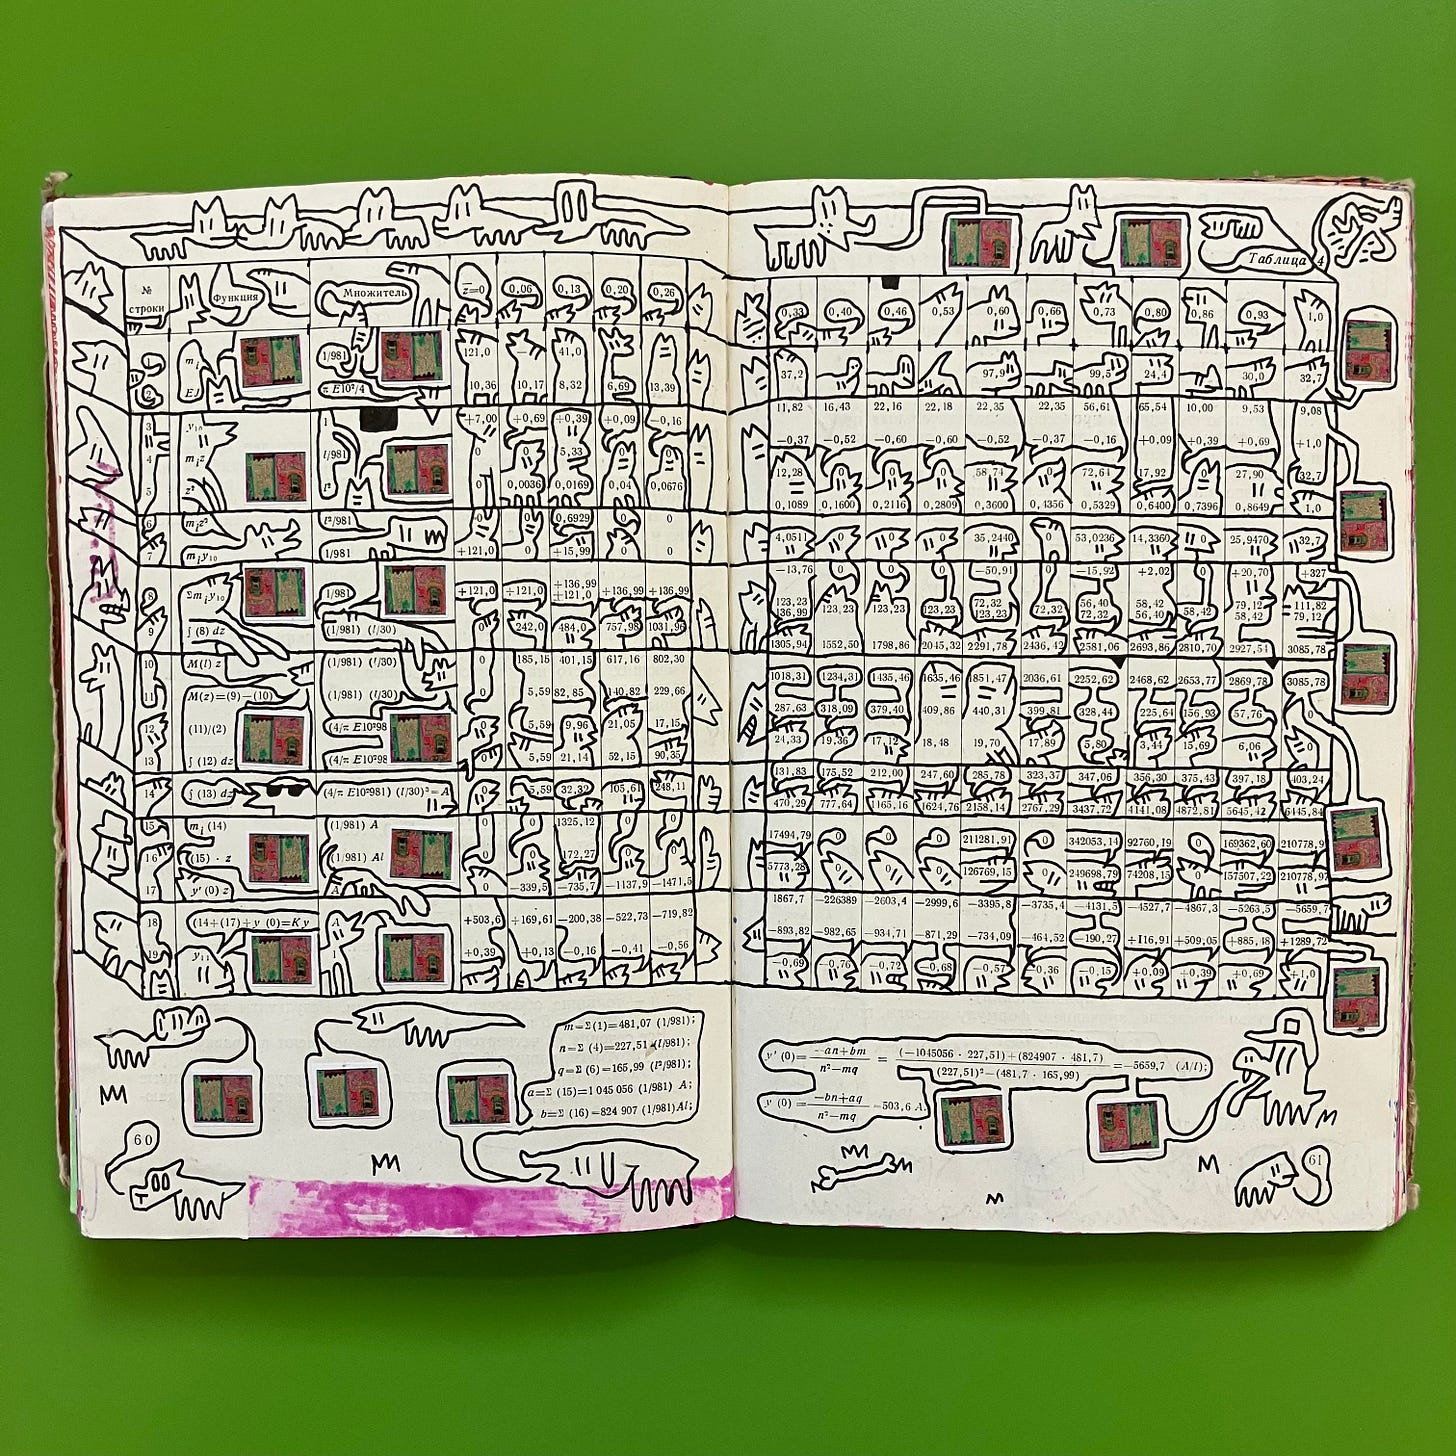 № строки Функция Множитель z=0 0,06 0,13 0,20 0,26
1 1/981 121,0 — 41,0
2 EJ π E10²/4 10,36 10,17 8,32 6,69 13,39
3 y₁₀ 1 +7,00 +0,69 +0,39 +0,09 −0,16
4 mᵢz l/981 0 0 5,33 0 0
5 z² l² 0 0,0036 0,0169 0,04 0,0676
6 mᵢz² l²/981 0 0 0,6929 0 0
7 mᵢy₁₀ 1/981 +121,0 0 +15,99 0 0
+136,99
8 Σmᵢy₁₀ (1/981) +121,0 +121,0 +121,0 +136,99 +136,99
9 ∫ (8) dz (1/981) (l/30) 0 242,0 484,0 757,98 1031,96
10 M(l) z (1/981) (l/30) 0 185,15 401,15 617,16 802,30
11 M(z)=(9)−(10) (1/981) (l/30) 0 5,59 82,85 140,82 229,66
12 (11)/(2) (4/π E10²98 0 5,59 9,96 21,05 17,15
13 ∫ (12) dz (4/π E10²98 0 5,59 21,14 52,15 90,35
14 ∫ (13) dz (4/π E10²981) (l/30)²=A 0 5,59 32,32 105,61 248,11
15 mᵢ (14) (1/981) A 0 0 1325,12 0 0
16 (15) · z (1/981) Al 0 0 172,27 0 0
17 y′ (0) z A 0 −339,5 −735,7 −1137,9 −1471,5
18 (14+(17)+y (0)=Ky A +503,6 +169,61 −200,38 −522,73 −719,82
19 y₁₁ 1 +0,39 +0,13 −0,16 −0,41 −0,56
m=Σ (1)=481,07 (1/981);
n=Σ (4)=227,51 (l/981);
q=Σ (6)=165,99 (l²/981);
a=Σ (15)=1 045 056 (1/981) A;
b=Σ (16)=824 907 (1/981) Al;
60
Таблица 4
0,33 0,40 0,46 0,53 0,60 0,66 0,73 0,80 0,86 0,93 1,0
37,2 97,9 99,5 24,4 30,0 32,7
11,82 16,43 22,16 22,18 22,35 22,35 56,61 65,54 10,00 9,53 9,08
−0,37 −0,52 −0,60 −0,60 −0,52 −0,37 −0,16 +0,09 +0,39 +0,69 +1,0
12,28 0 0 0 58,74 0 72,61 17,92 0 27,90 32,7
0,1089 0,1600 0,2116 0,2809 0,3600 0,4356 0,5329 0,6400 0,7396 0,8649 1,0
4,0511 0 0 0 35,2440 0 53,0236 14,3360 0 25,9470 32,7
−13,76 0 0 0 −50,91 0 −15,92 +2,02 0 +20,70 +327
123,23 72,32 56,40 58,42 79,12 111,82
136,99 123,23 123,23 123,23 123,23 72,32 72,32 56,40 58,42 58,42 79,12
1305,94 1552,50 1798,86 2045,32 2291,78 2436,42 2581,06 2693,86 2810,70 2927,54 3085,78
1018,31 1234,31 1435,46 1635,46 1851,47 2036,61 2252,62 2468,62 2653,77 2869,78 3085,78
287,63 318,09 379,40 409,86 440,31 399,81 328,44 225,64 156,93 57,76 0
24,33 19,36 17,12 18,48 19,70 17,89 5,80 3,44 15,69 6,06 0
131,83 175,52 212,00 247,60 285,78 323,37 347,06 356,30 375,43 397,18 403,24
470,29 777,64 1165,16 1624,76 2158,14 2767,29 3437,72 4141,08 4872,81 5645,42 6445,84
17494,79 0 0 0 211281,91 0 342053,14 92760,19 0 169362,60 210778,9
5773,28 0 0 0 126769,15 0 249698,79 74208,15 0 157507,22 210778,97
1867,7 −226389 −2603,4 −2999,6 −3395,8 −3735,4 −4131,5 −4527,7 −4867,3 −5263,5 −5659,7
−893,82 −982,65 −934,71 −871,29 −734,09 −464,52 −190,27 +116,91 +509,05 +885,48 +1289,72
−0,69 −0,76 −0,72 −0,68 −0,57 0,36 −0,15 +0,09 +0,39 +0,69 +1,0
y′ (0)= −an+bm / n²−mq = (−1045056 · 227,51)+(824907 · 481,7) / (227,51)²−(481,7 · 165,99) =−5659,7 (A/l);
y (0)= −bn+aq / n²−mq −503,6 A
61